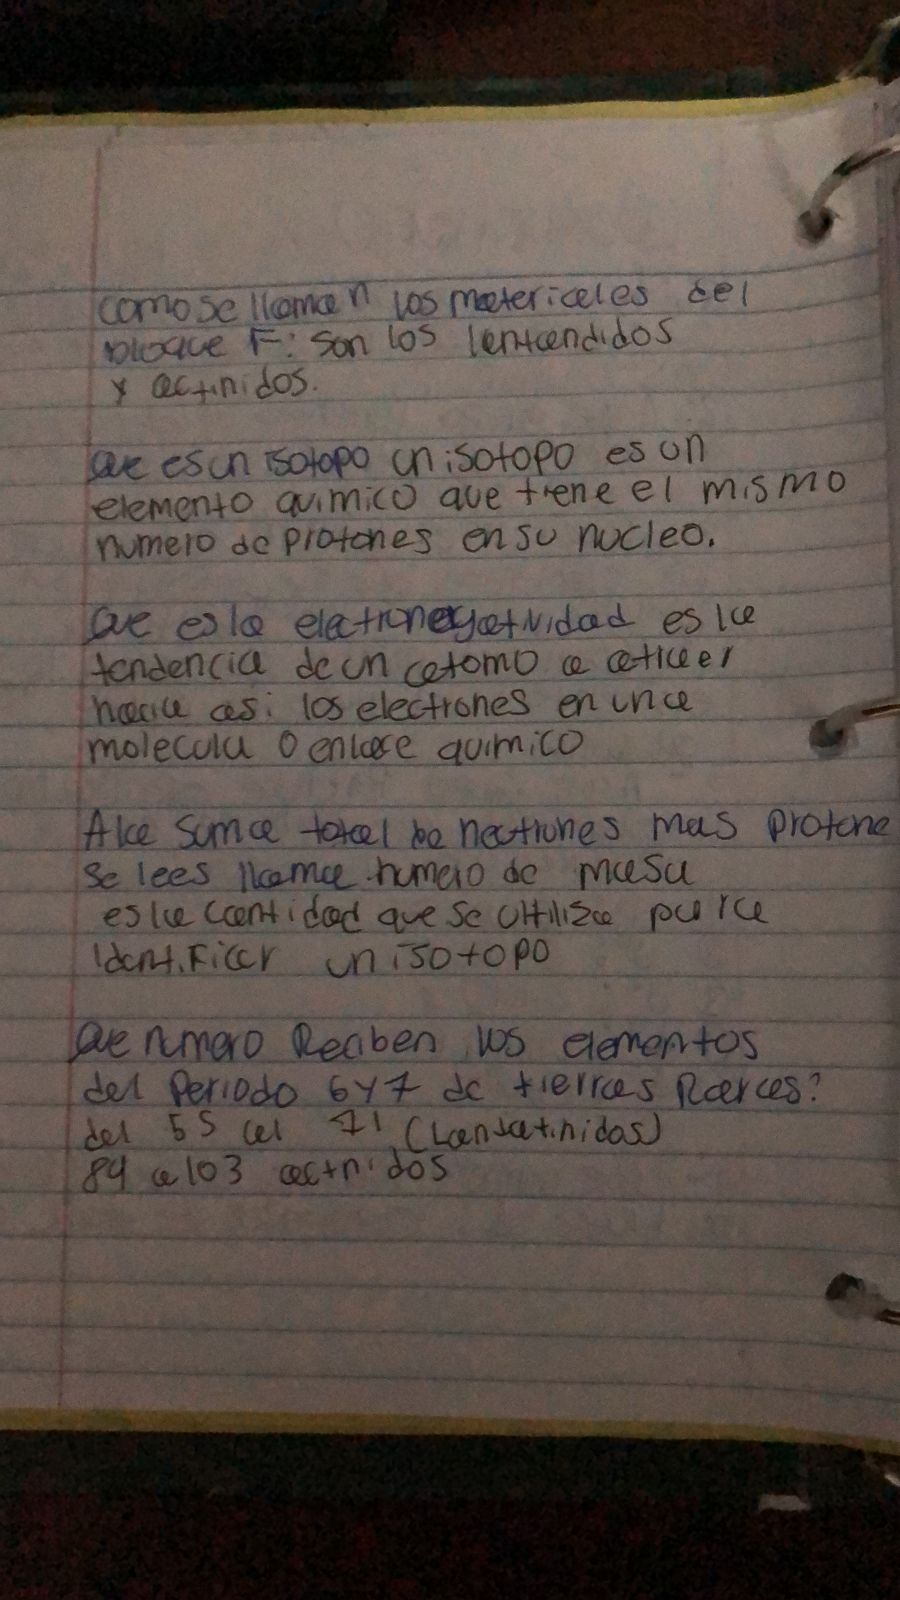 como se llaman los materiales del
bloque F: son los lentandidos
y actinidos.
Que es un isotopo un isotopo es un
elemento quimico que tiene el mismo
numero de protones en su nucleo.
Que es la electronegatividad es la
tendencia de un atomo a atraer
hacia asi los electrones en una
molecula o enlace quimico
A la suma total de neutrones mas protone
se lees llama numero de masa
es la cantidad que se ultiliza para
identificar un isotopo
Que numero Reciben los elementos
del Periodo 6 y 7 de tierras Rarces?
del 55 al 71 (Lansatinidos)
89 a 103 actnidos